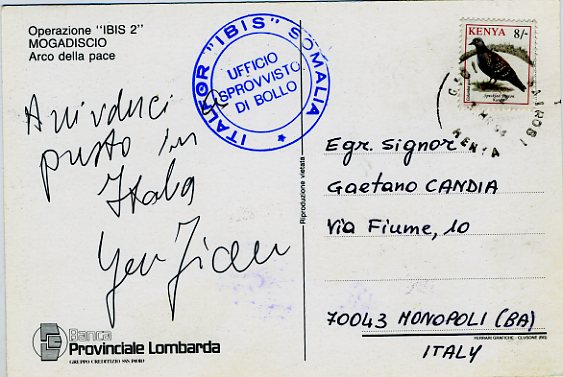 Operazione "IBIS 2"
MOGADISCIO
Arco della pace
ITALFOR "IBIS" SOMALIA
UFFICIO
SPROVVISTO
DI BOLLO
KENYA
8/-
NAIROBI
KENYA
Arrivederci
presto in
Italia
Egr. Signor
Gaetano CANDIA
Via Fiume, 10
70043 MONOPOLI (BA)
ITALY
Riproduzione vietata
Banca
Provinciale Lombarda
GRUPPO CREDITIZIO SAN PAOLO
FERRARI GRAFICHE - CLUSONE (BG)